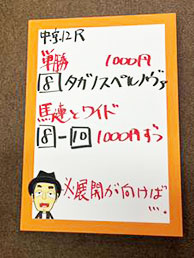 中京12R
単勝 1000円
8 タガノスペルノヴァ
馬連とワイド
8-10 1000円ずつ
※展開が向けば
…。